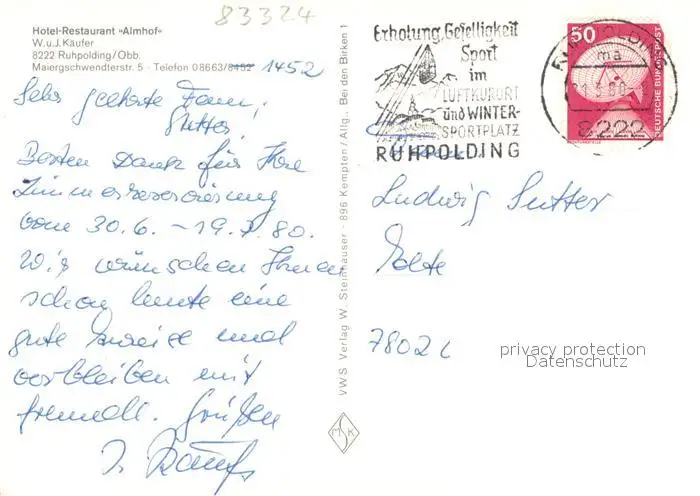 83324
Hotel-Restaurant »Almhof«
W. u. J. Käufer
8222 Ruhpolding/Obb.
Maiergschwendterstr. 5 - Telefon 08663/8452 1452
Sehr geehrte Fam.
Sutter,
Besten Dank für Ihre
Zimmerreservierung
vom 30.6. – 19.7.80.
Wir wünschen Ihnen
schon heute eine
gute Anreise und
verbleiben mit
freundl. Grüßen
VWS Verlag W. Steinhäuser - 896 Kempten / Allg., Bei den Birken 1
MSK
Erholung, Geselligkeit
Sport
im
LUFTKURORT
und WINTER-
SPORTPLATZ
RUHPOLDING
50
DEUTSCHE BUNDESPOST
RUHPOLDING
ma
8222
Ludwig Sutter
7802
privacy protection
Datenschutz